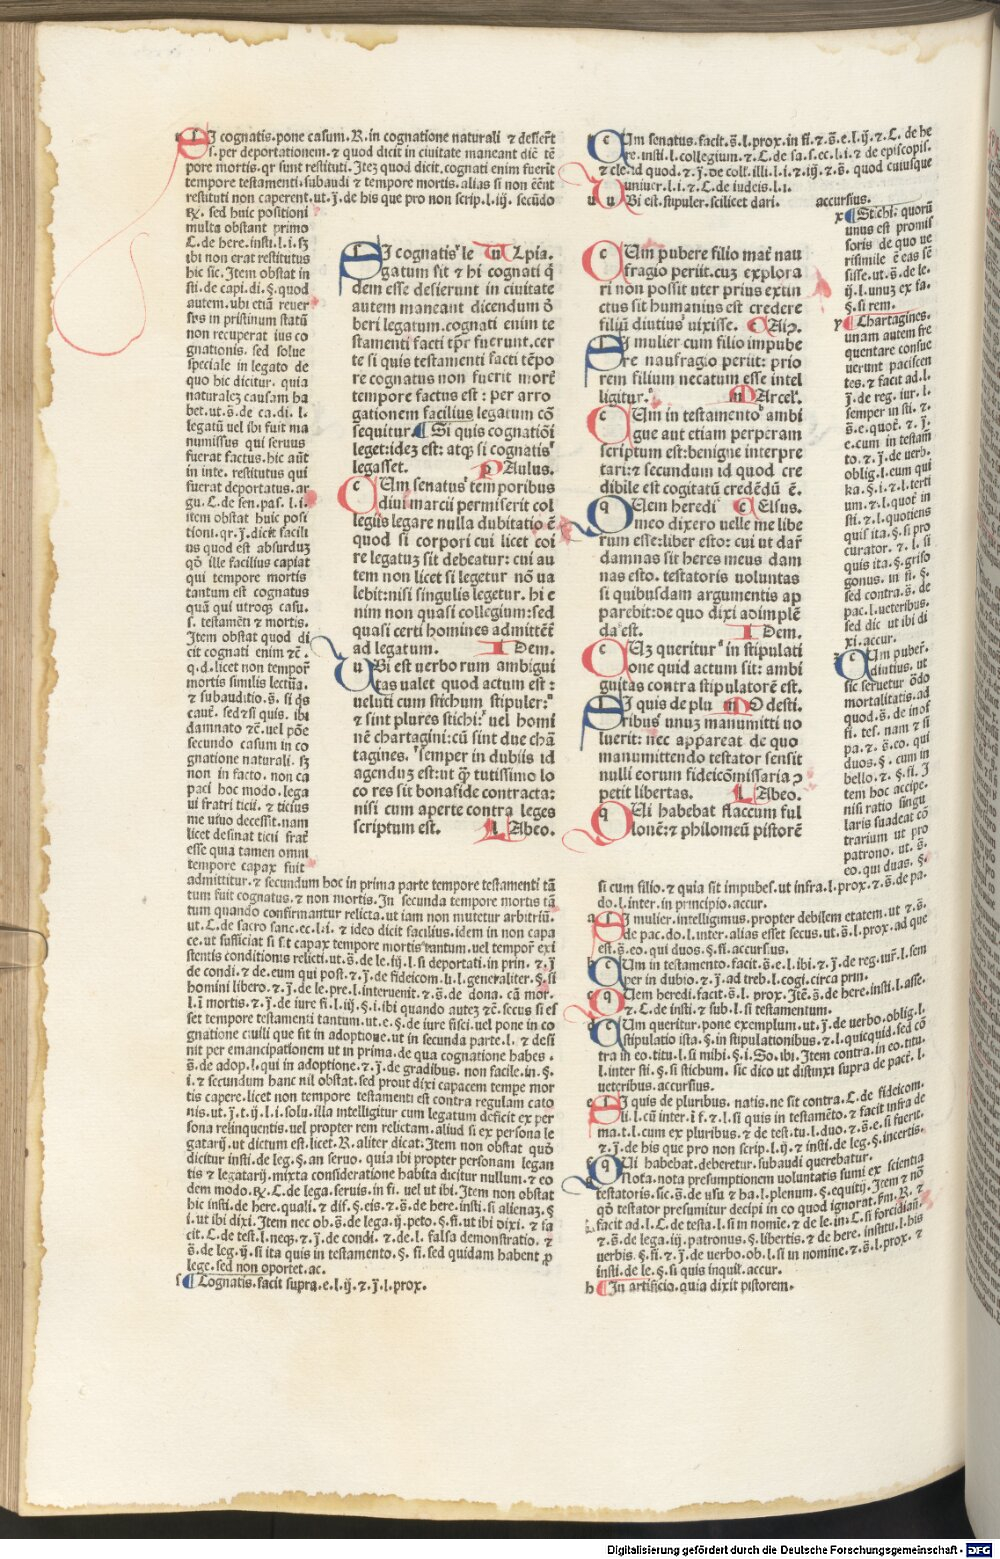 SI cognatis. pone casum. R. in cognatione naturali ⁊ desierūt
s. per deportationem. ⁊ quod dicit in ciuitate maneant dic̄ tē
pore mortis. qr sunt restituti. Itez quod dicit. cognati enim fuerīt
tempore testamenti. subaudi ⁊ tempore mortis. alias si non eēnt
restituti non caperent. ut. j̄. de his que pro non scrip. l. iij. secūdo
multa obstant primo
C. de here. insti. l. i. sʒ
ibi non erat restitutus
hic sic. Item obstat in
sti. de capi. di. §. quod
autem. ubi etiā reuer
sus in pristinum statū
non recuperat ius co
gnationis. sed solue
speciale in legato de
quo hic dicitur. quia
naturalez causam ha
bet. ut. s̄. de ca. di. l.
legatū uel ibi fuit ma
numissus qui seruus
fuerat factus. hic aūt
in inte. restitutus qui
fuerat deportatus. ar
gu. C. de sen. pas. l. i.
item obstat huic posi
tioni. qr. j̄. dicit facili
us quod est absurduʒ
qō ille facilius capiat
qui tempore mortis
tantum est cognatus
quā qui utroqʒ casu.
s. testamēti ⁊ mortis.
Item obstat quod di
cit cognati enim ⁊c̄.
q. d. licet non tempor̄
mortis similis lectura.
⁊ subauditio. s̄. si qs
damnato ⁊c̄. uel pōe
secundo casum in co
gnatione naturali. sʒ
non in facto. non ca
paci hoc modo. lega
ui fratri ticii. ⁊ ticius
me uiuo decessit. nam
licet desinat ticii frat̄
esse quia tamen omni
tempore capax fuit
admittitur. ⁊ secundum hoc in prima parte tempore testamenti tā
tum fuit cognatus. ⁊ non mortis. In secunda tempore mortis tā
tum quando confirmantur relicta. ut iam non mutetur arbitriū.
ut. C. de sacro sanc. ec. l. i. ⁊ ideo dicit facilius. idem in non capa
ce. ut sufficiat si sit capax tempore mortis tantum. uel tempor̄ exi
stentis conditionis relicti. ut. s̄. de le. iij. l. si deportati. in prin. ⁊ j̄
de condi. ⁊ de. eum qui post. ⁊. j̄. de fideicom. li. l. generaliter. §. si
homini libero. ⁊. j̄. de le. pre. l. interuenit. ⁊. s̄. de dona. cā mor.
l. ī mortis. ⁊. j̄. de iure fi. l. iij. §. i. ibi quando autez ⁊c̄. secus si es
set tempore testamenti tantum. ut. e. §. de iure fisci. uel pone in co
gnatione ciuili que fit in adoptione. ut in secunda parte. l. ⁊ desi
nit per emancipationem ut in prima. de qua cognatione habes.
s̄. de adop. l. qui in adoptione. ⁊. j̄. de gradibus. non facile. in. §.
i. ⁊ secundum hanc nil obstat. sed prout dixi capacem tempe mor
tis capere. licet non tempore testamenti est contra regulam cato
nis. ut. j̄. t. ij. l. i. solu. illa intelligitur cum legatum deficit ex per
sona relinquentis. uel propter rem relictam. aliud si ex persona le
gatarij. ut dictum est. licet. R. aliter dicat. Item non obstat quō
dicitur insti. de leg. §. an seruo. quia ibi propter personam legan
tis ⁊ legatarij. mixta consideratione habita dicitur nullum. ⁊ eo
dem modo. ℞. C. de lega. seruis. in fi. uel ut ibi. Item non obstat
hic insti. de here. quali. ⁊ dif. §. eis. ⁊ s̄. de here. insti. si alienaʒ. §
i. ut ibi dixi. Item nec ob. s̄. de lega. ij. peto. §. fi. ut ibi dixi. ⁊ fa
cit. C. de test. l. neqʒ. ⁊. j̄. de condi. ⁊ de. l. falsa demonstratio. ⁊
s̄. de leg. ij. si ita quis in testamento. §. fi. sed quidam habent p̱
lege. sed non oportet. ac.
s ¶ Cognatis. facit supra. e. l. ij. ⁊ j̄. l. prox.
SI cognatis le Ulpia.
gatum sit ⁊ hi cognati q̄
dem esse desierunt in ciuitate
autem maneant dicendum ō
beri legatum. cognati enim te
stamenti facti tp̄r fuerunt. cer
te si quis testamenti facti tēpo
re cognatus non fuerit morť
tempore factus est : per arro
gationem facilius legatum cō
sequitur. ¶ Si quis cognatiōi
leget: ideʒ est: atqʒ si cognatis
legasset. Paulus.
CUm senatus temporibus
diui marcii permiserit col
legiis legare nulla dubitatio ē
quod si corpori cui licet coi
re legatuʒ sit debeatur: cui au
tem non licet si legetur nō ua
lebit: nisi singulis legetur. hi e
nim non quasi collegium: sed
quasi certi homines admittēt̄
ad legatum. Idem.
UBi est uerborum ambigui
tas ualet quod actum est :
ueluti cum stichum stipuler:
⁊ sint plures stichi: uel homi
nē chartagini: cū sint due chā
tagines. semper in dubiis id
agenduʒ est: ut q̄ tutissimo lo
co res sit bonafide contracta:
nisi cum aperte contra leges
scriptum est. Labeo.
CUm senatus. facit. s̄. l. prox. in fi. ⁊. s̄. e. l. ij. ⁊. C. de he
re. insti. l. collegium. ⁊ C. de sa. s. ec. l. i. ⁊ de episcopis.
⁊ cle. id quod. ⁊. j̄. de coll. illi. l. i. ⁊ iij. ⁊ s̄. quod cuiusque
uniuer. l. i. ⁊ C. de iudeis. l. i.
u UBi est. stipuler. scilicet dari. accursius.
CUm pubere filio mat̄ nau
fragio periit. cuʒ explora
ri non possit uter prius extin
ctus sit humanius est credere
filiū diutius uixisse.
SI mulier cum filio impube
re naufragio periit: prio
rem filium necatum esse intel
ligitur. Marcel.
CUm in testamento ambi
gue aut etiam perperam
scriptum est: benigne interpre
tari: ⁊ secundum id quod cre
dibile est cogitatū credēdū ē.
QUem heredi Celsus.
meo dixero uelle me libe
rum esse: liber esto: cui ut dar̄
damnas sit heres meus dam
nas esto. testatoris uoluntas
si quibusdam argumentis ap
parebit: de quo dixi adimplē
da est. Idem.
CUʒ queritur in stipulati
one quid actum sit: ambi
guitas contra stipulatorē est.
SI quis de plu Modesti.
ribus unuʒ manumitti uo
luerit: nec appareat de quo
manumittendo testator sensit
nulli eorum fideicōmissaria
petit libertas. Labeo.
QUi habebat flaccum ful
lonē: ⁊ philomeū pistorē
x ¶ Stichi. quorū
unus est promis
soris de quo ue
risimile ē eas sē
sisse. ut. s̄. de le.
ij. l. unuʒ ex fa.
§. si rem.
y ¶ Chartagines.
unam autem fre
quentare consue
uerunt paciscen
tes. ⁊ facit ad. l.
j̄. de reg. iur. l.
semper in sti. ⁊.
s̄. e. quot̄. ⁊. j̄.
e. cum in testam̄
to. ⁊ j̄. de uerb.
oblig. l. cum qui
ka. §. i. ⁊. l. terti
um. ⁊ l. quot̄ in
sti. ⁊. l. quotiens
quis ita. §. si pro
curator. ⁊. l. si
quis ita. §. griso
gonus. in fi. §.
sed contra. s̄. de
pac. l. ueteribus.
sed dic ut ibi di
xi. accur.
CUm puber.
diutius. ut
sic seruetur ōdo
mortalitatis. ad
quod. s̄. de inof
fi. tes. nam ⁊ si
pa. ⁊. s̄. co. qui
duos. §. cum in
bello. ⁊. §. fi. I
tem hoc accipe.
nisi ratio singu
laris suadeat cō
trarium ut pro
patrono. ut. s̄.
eo. qui duas. §.
si cum filio. ⁊ quia sit impubes. ut infra. l. prox. ⁊. s̄. de pa-
do. l. inter. in principio. accur.
a SI mulier. intelligimus. propter debilem etatem. ut ⁊. s̄.
de pac. do. l. inter. alias esset secus. ut. s̄. l. prox. ad que
est. s̄. eo. qui duos. §. fi. accursius.
b CUm in testamento. facit. s̄. e. l. ibi. ⁊. j̄. de reg. iur̄. l. sem
per in dubio. ⁊ j̄. ad treb. l. cogi. circa prin.
c QUem heredi. facit. s̄. l. prox. Itē. s̄. de here. insti. l. asse.
⁊. C. de insti. ⁊ sub. l. si testamentum.
d CUm queritur. pone exemplum. ut. j̄. de uerbo. oblig. l.
stipulatio ista. §. in stipulationibus. ⁊ l. quicquid. sed cō
tra in eo. titu. l. si mihi. §. i. So. ibi. Item contra. in eo. titu.
l. inter sti. §. si stichum. sic dico ut distinxi supra de pact̄. l.
ueteribus. accursius.
e SI quis de pluribus. natis. ne sit contra. C. de fideicom.
li. l. cū inter. i f. ⁊. l. si quis in testamēto. ⁊ facit infra de
ma. t. l. cum ex pluribus. ⁊ de test. tu. l. duo. ⁊. s̄. e. si fuerit.
⁊. j̄. de his que pro non scrip. l. ij. ⁊ insti. de leg. §. incertis.
QUi habebat. deberetur. subaudi querebatur.
Nota. nota presumptionem uoluntatis sumi ex scientia
testatoris. sic. s̄. de usu ⁊ ha. l. plenum. §. equitij. Item ⁊ nō
qō testator presumitur decipi in eo quod ignorat. fm. R. ⁊
facit ad. l. C. de testa. l. si in nomīe. ⁊ de le. in. C. si forcidian̄.
⁊ s̄. de lega. iij. patronus. §. libertis. ⁊ de here. institu. l. his
uerbis. §. fi. ⁊ j̄. de uerbo. ob. l. si in nomine. ⁊. s̄. l. prox. ⁊
insti. de le. §. si quis inquit. accur.
h ¶ In artificio. quia dixit pistorem.
Digitalisierung gefördert durch die Deutsche Forschungsgemeinschaft - DFG